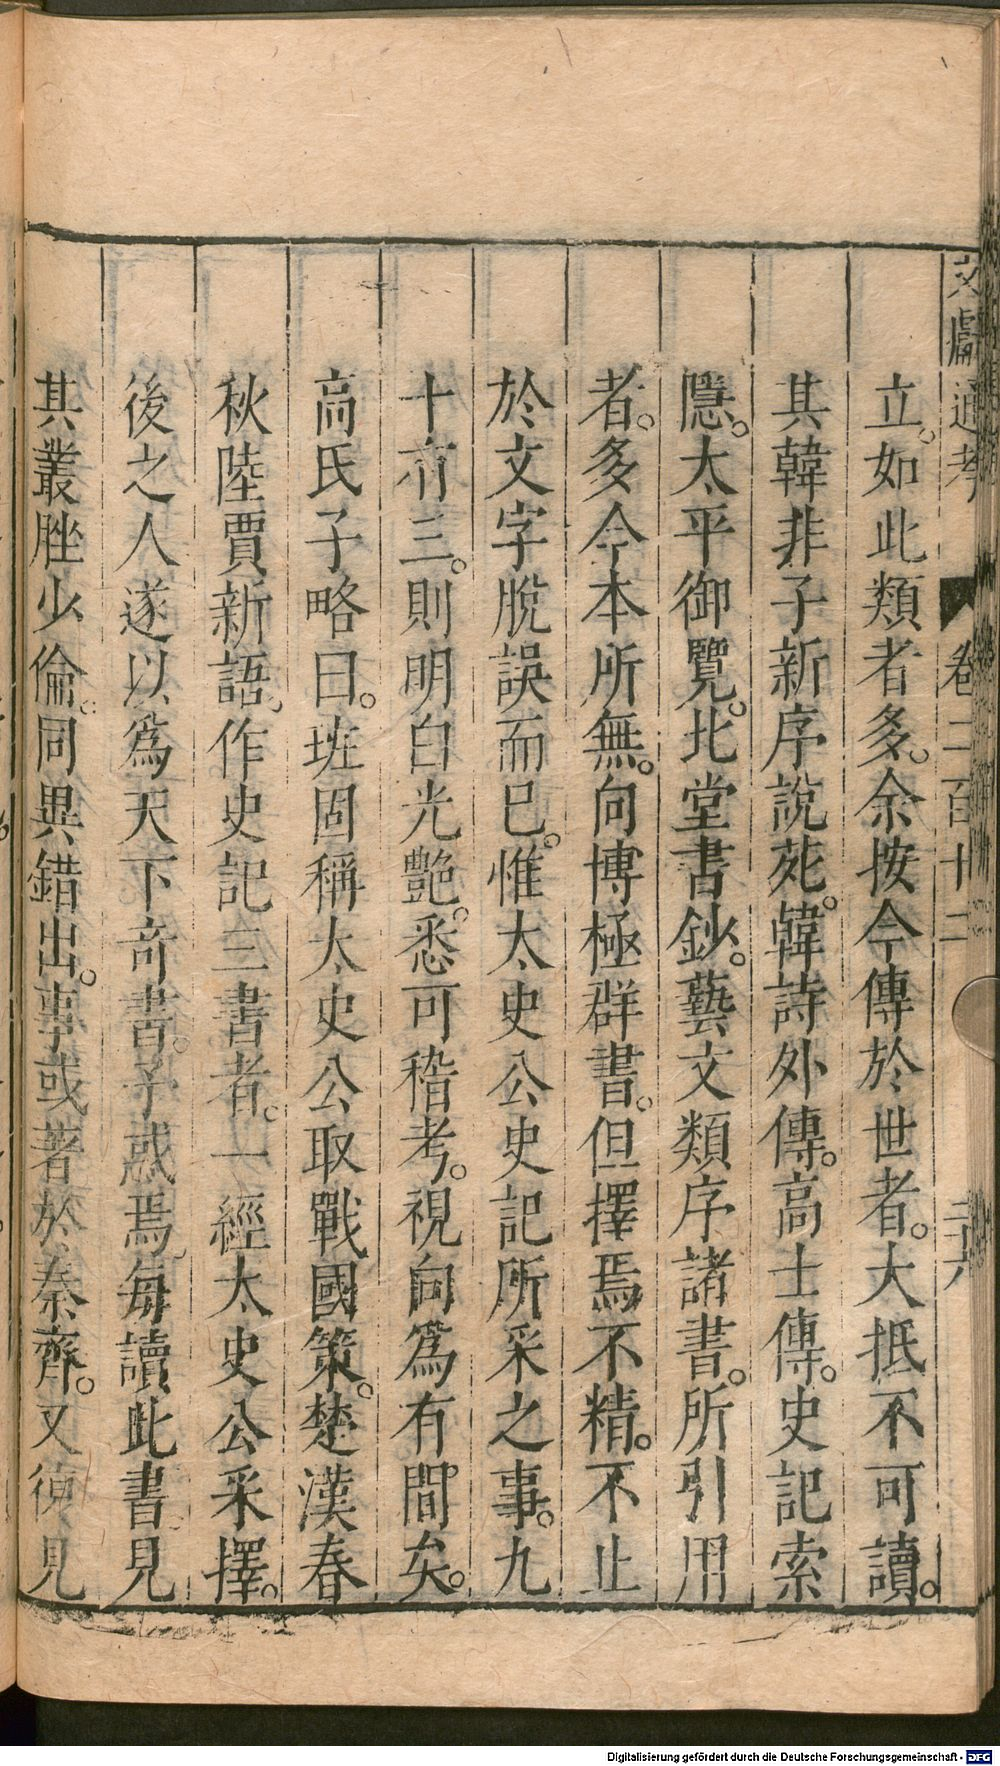 文獻通考 卷二百十二 三十六
立。如此類者多。余按今傳於世者。大抵不可讀。
其韓非子新序說苑。韓詩外傳。高士傳。史記索
隱。太平御覽。北堂書鈔。藝文類序諸書。所引用
者。多今本所無。向博極群書。但擇焉不精。不止
於文字脫誤而已。惟太史公史記所采之事。九
十有三。則明白光艷。悉可稽考。視向爲有間矣。
高氏子略曰。班固稱太史公取戰國策。楚漢春
秋陸賈新語。作史記三書者。一經太史公采擇。
後之人遂以爲天下奇書。予惑焉。每讀此書見
其叢脞少倫。同異錯出。事或著於秦齊。又復見
Digitalisierung gefördert durch die Deutsche Forschungsgemeinschaft - DFG